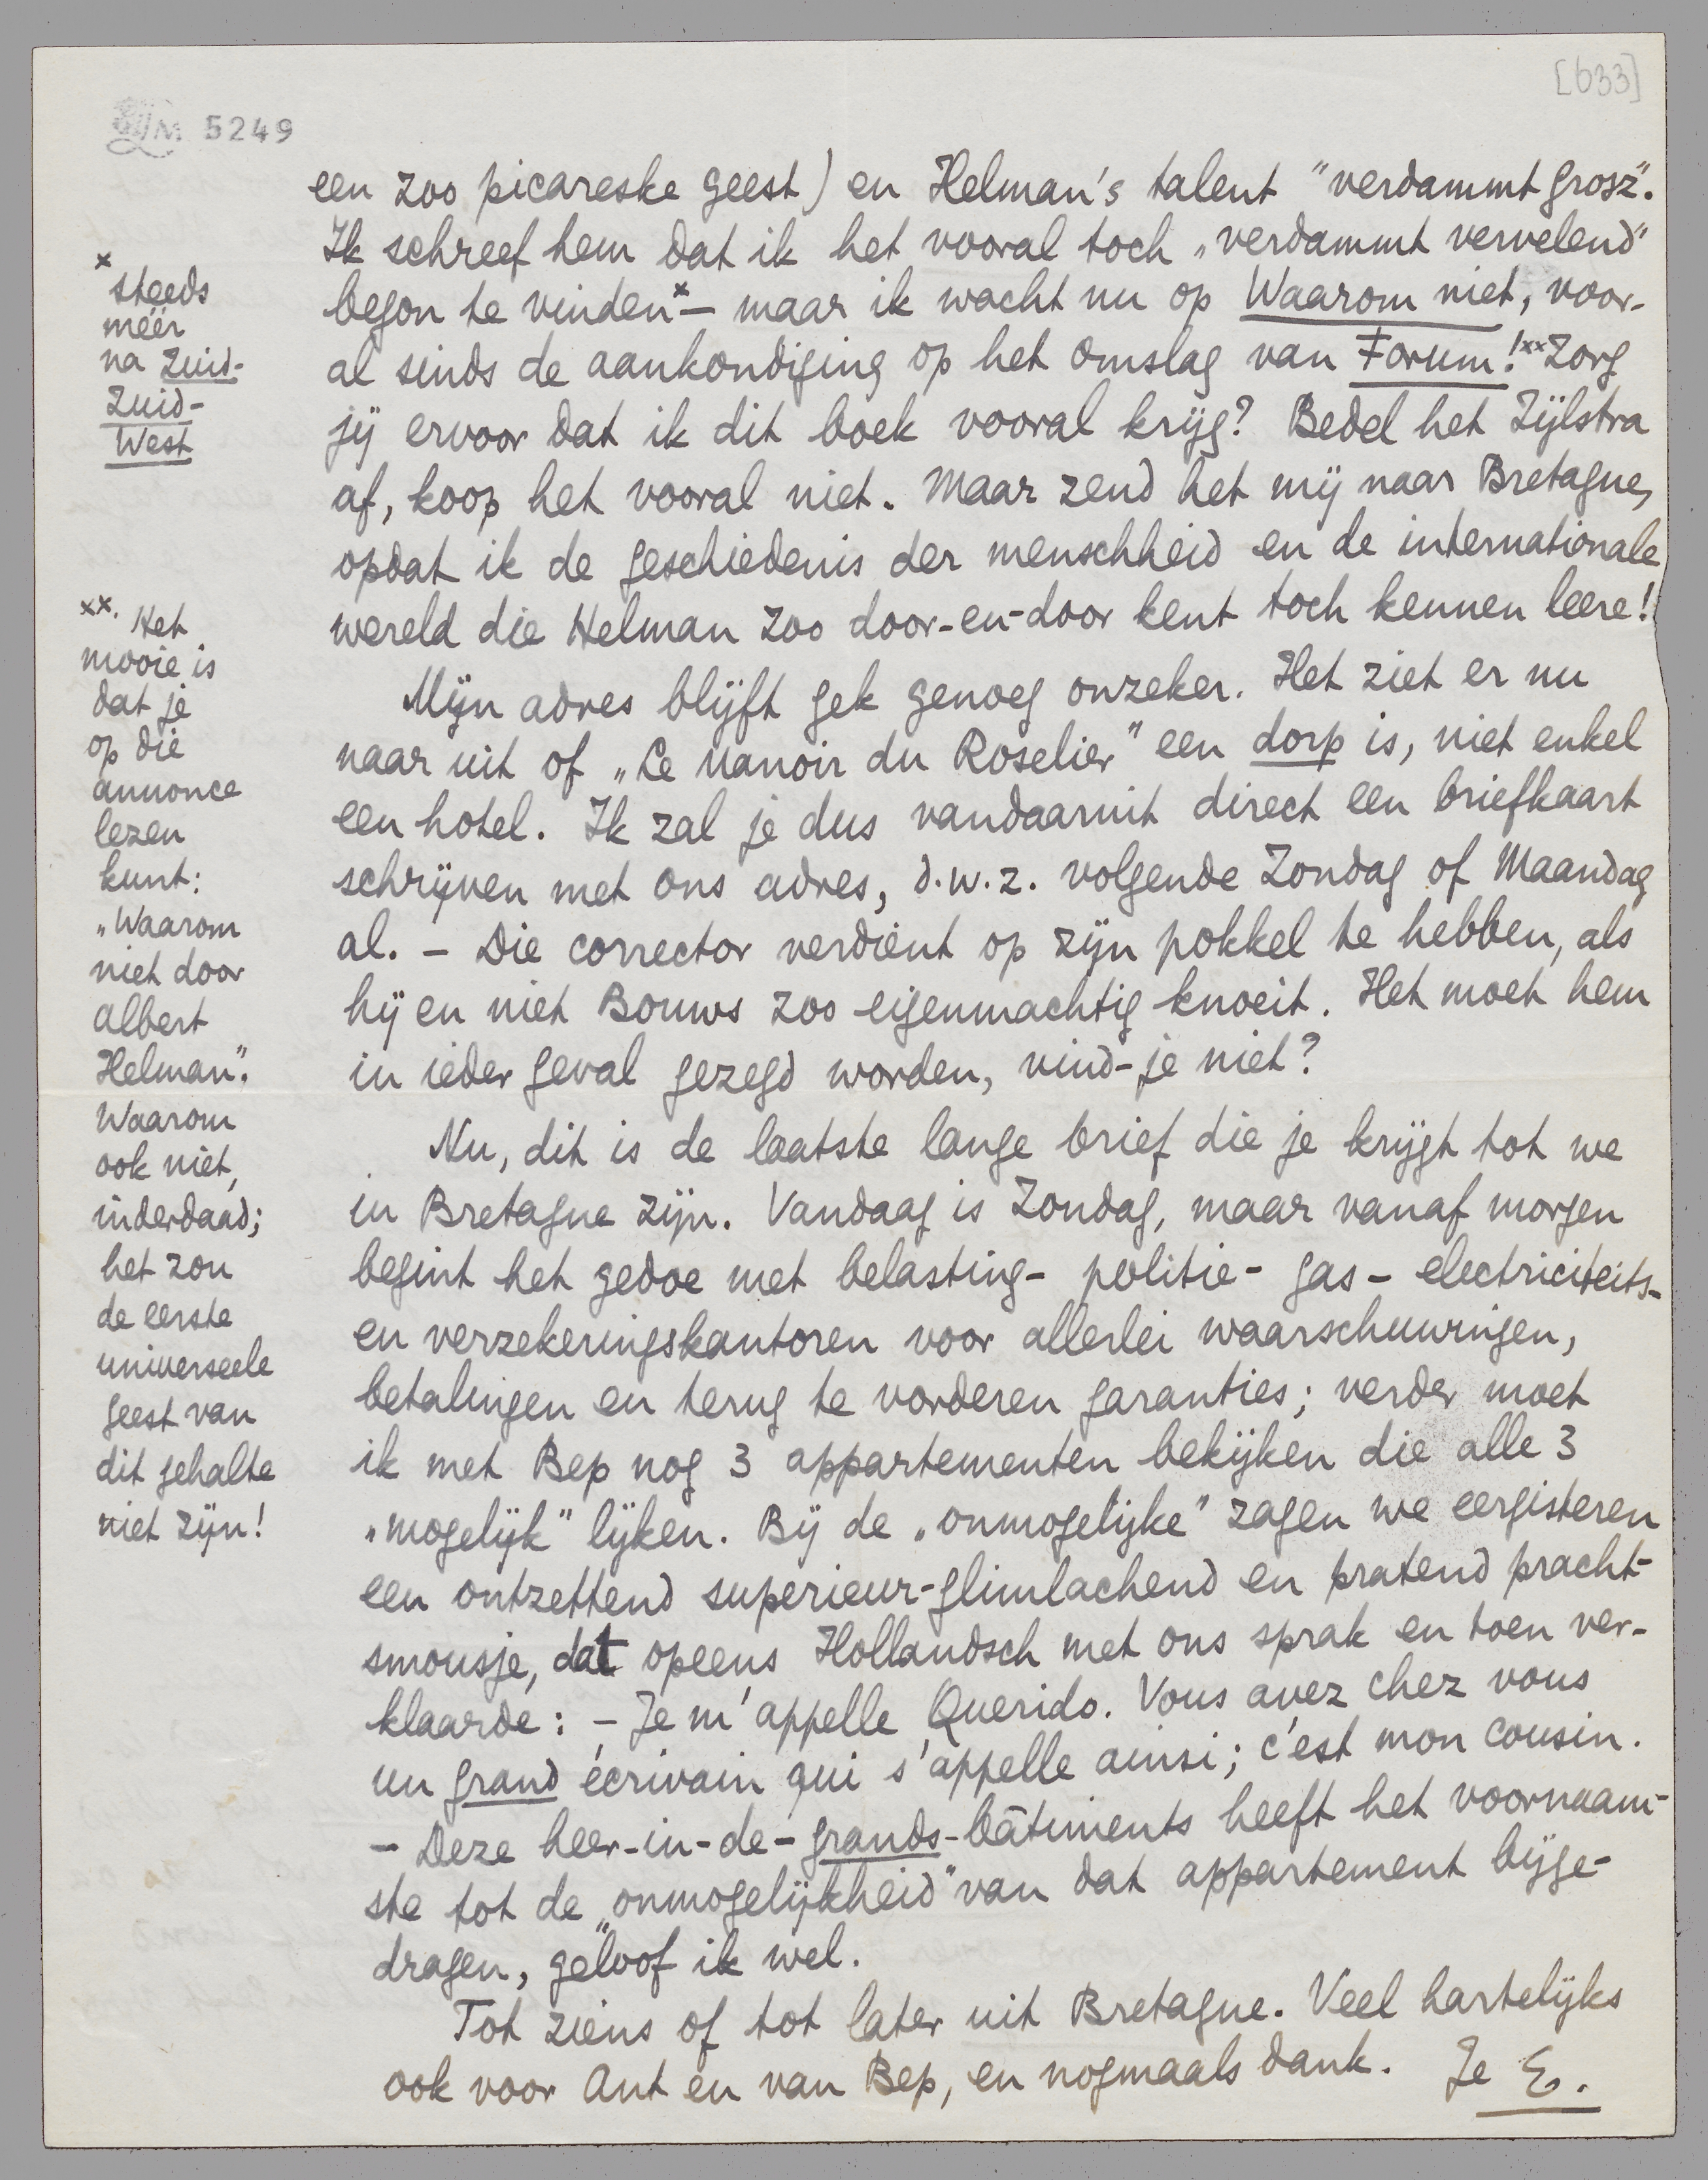 [633]
LM 5249
een zoo picareske geest) en Helman's talent "verdammt grosz".
Ik schreef hem dat ik het vooral toch „verdammt vervelend"
begon te vinden x — maar ik wacht nu op Waarom niet, voor-
al sinds de aankondiging op het omslag van Forum! xx Zorg
jij ervoor dat ik dit boek vooral krijg? Bedel het Zijlstra
af, koop het vooral niet. Maar zend het mij naar Bretagne,
opdat ik de geschiedenis der menschheid en de internationale
wereld die Helman zoo door-en-door kent toch kennen leere!
Mijn adres blijft gek genoeg onzeker. Het ziet er nu
naar uit of „Le Manoir du Roselier" een dorp is, niet enkel
een hotel. Ik zal je dus vandaaruit direct een briefkaart
schrijven met ons adres, d.w.z. volgende Zondag of Maandag
al. – Die corrector verdient op zijn pokkel te hebben, als
hij en niet Bouws zoo eigenmachtig knoeit. Het moet hem
in ieder geval gezegd worden, vind-je niet?
Nu, dit is de laatste lange brief die je krijgt tot we
in Bretagne zijn. Vandaag is Zondag, maar vanaf morgen
begint het gedoe met belasting- politie- gas- electriciteits-
en verzekeringskantoren voor allerlei waarschuwingen,
betalingen en terug te vorderen garanties; verder moet
ik met Bep nog 3 appartementen bekijken die alle 3
„mogelijk" lijken. Bij de „onmogelijke" zagen we eergisteren
een ontzettend superieur-glimlachend en pratend pracht-
smousje, dat opeens Hollandsch met ons sprak en toen ver-
klaarde: – Je m'appelle Querido. Vous avez chez vous
un grand écrivain qui s'appelle ainsi; c'est mon cousin.
– Deze heer-in-de-grands-bâtiments heeft het voornaam-
ste tot de „onmogelijkheid" van dat appartement bijge-
dragen, geloof ik wel.
Tot ziens of tot later uit Bretagne. Veel hartelijks
ook voor Ant en van Bep, en nogmaals dank. Je E.
x
steeds
méér
na Zuid-
Zuid-
West
xx. Het
mooie is
dat je
op die
annonce
lezen
kunt:
„Waarom
niet door
Albert
Helman".
Waarom
ook niet,
inderdaad;
het zou
de eerste
universeele
geest van
dit gehalte
niet zijn!